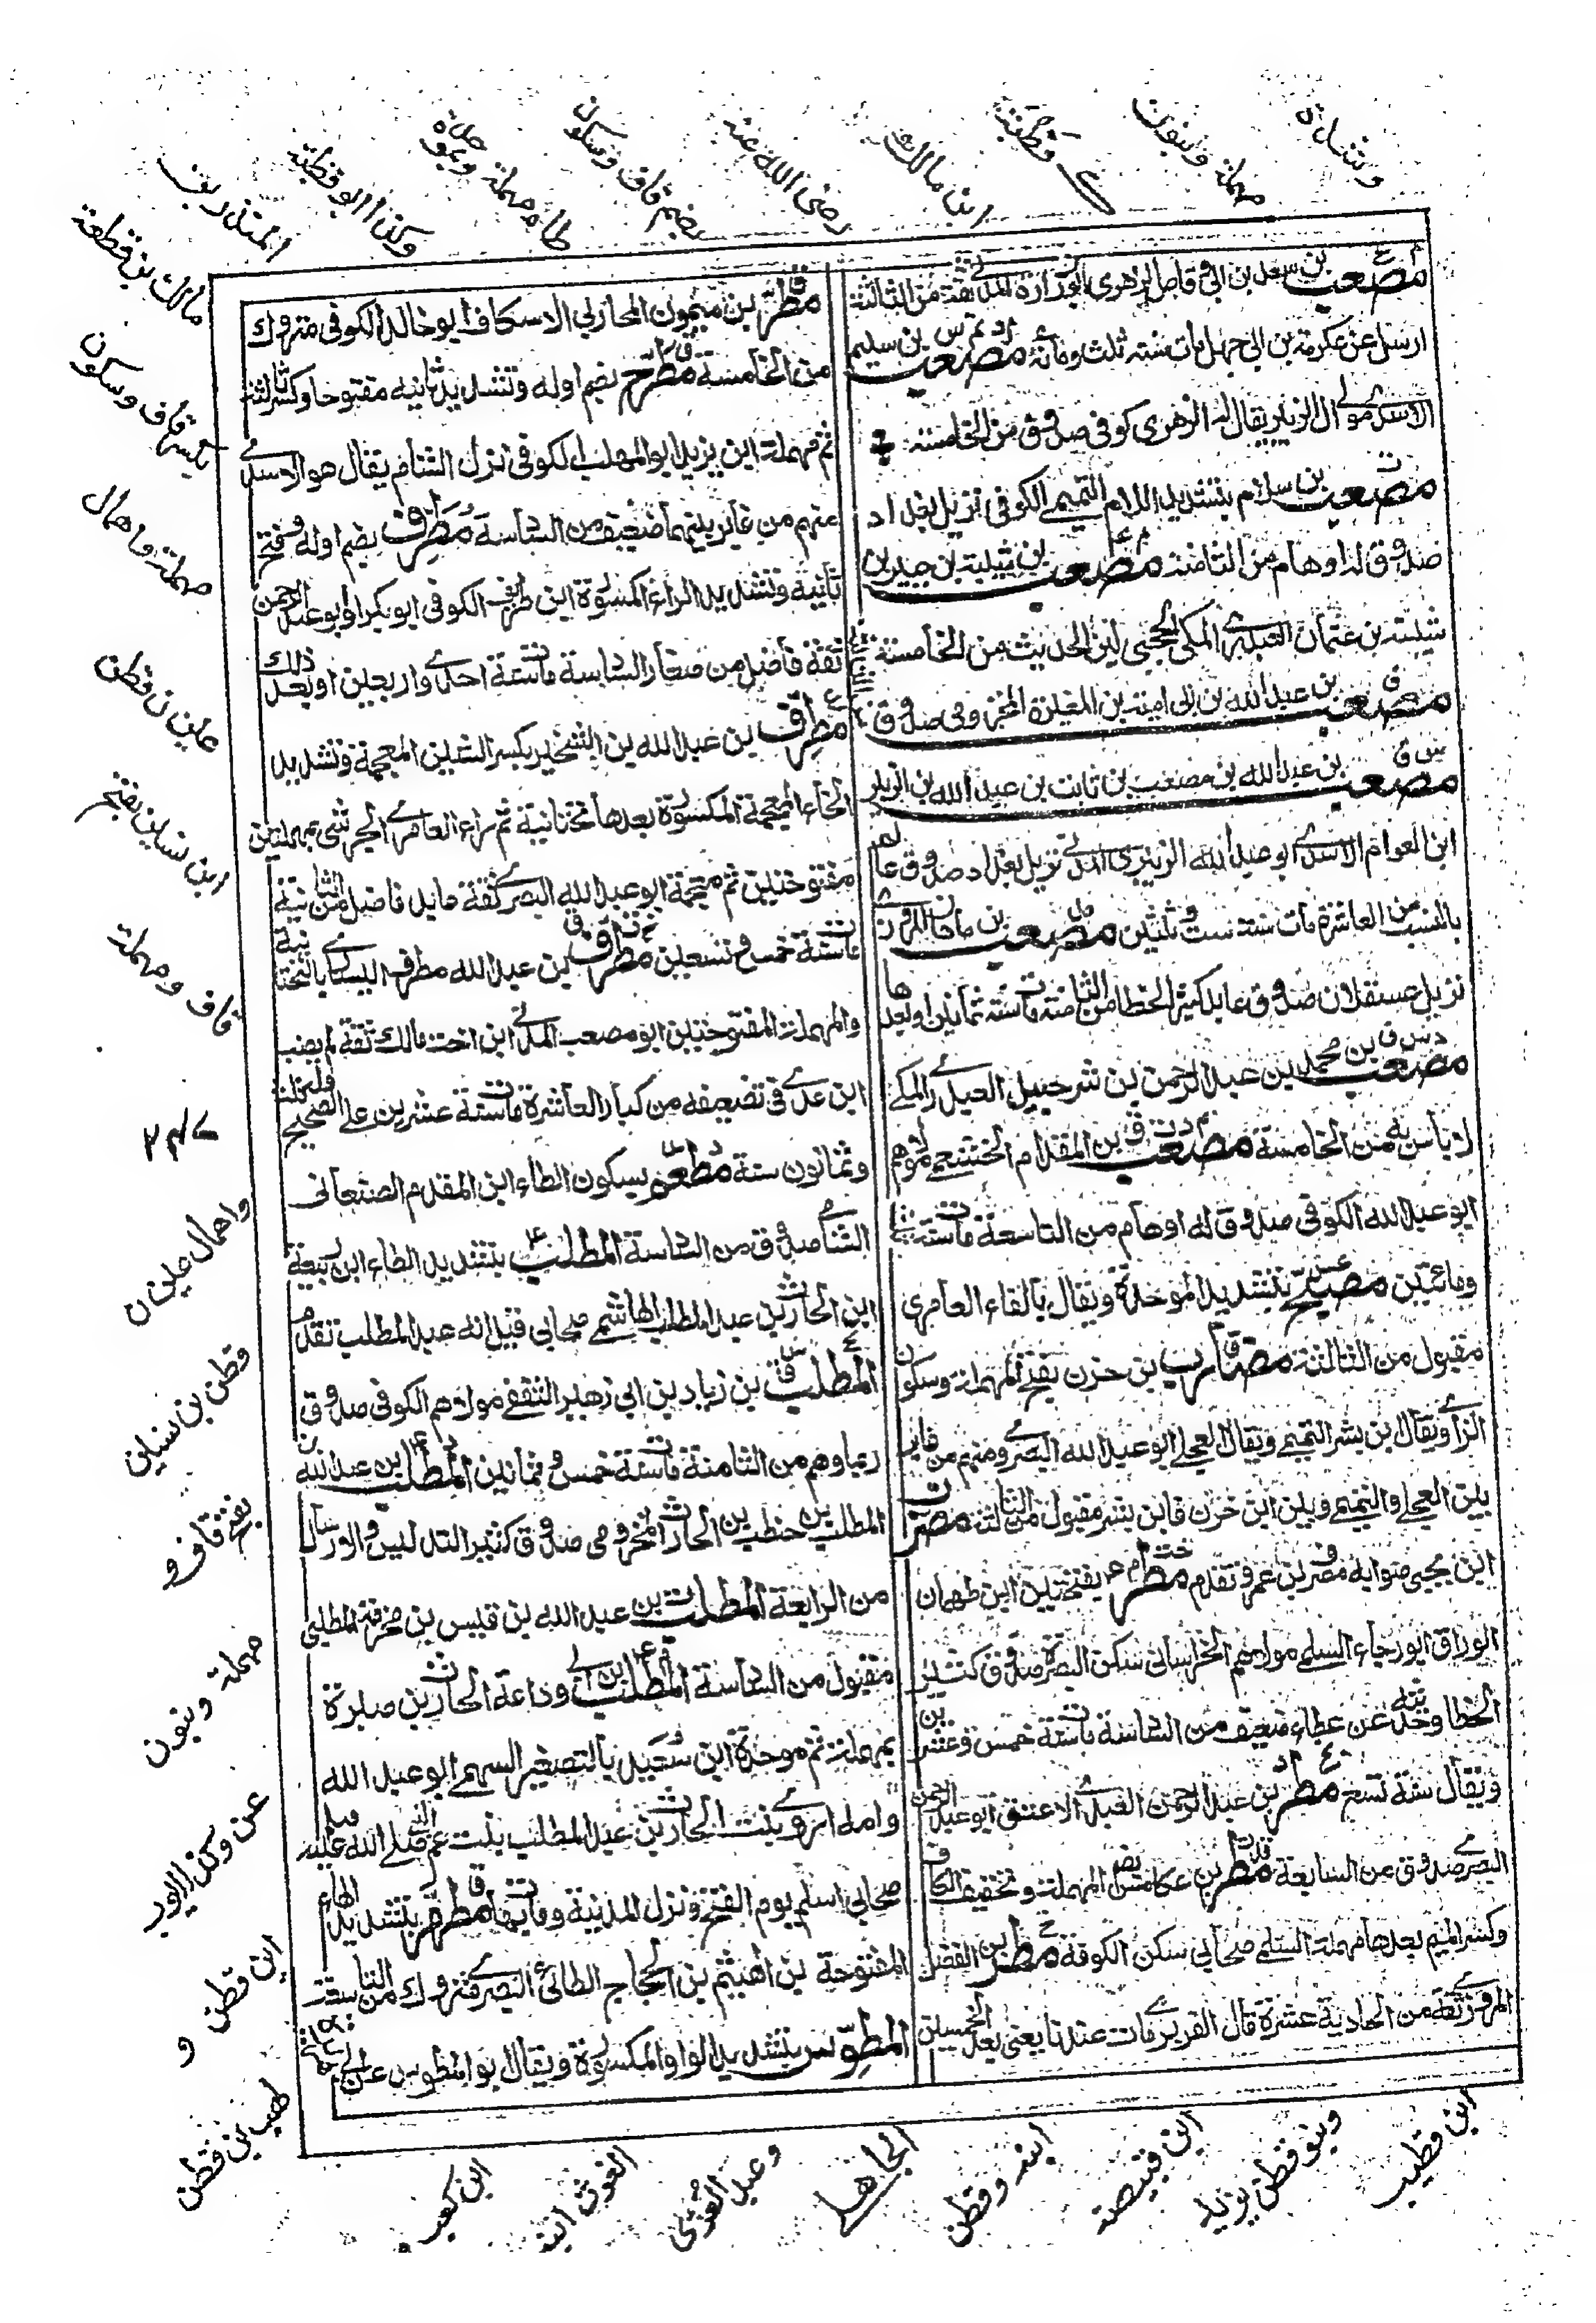 مصعب بن سعد بن ابي وقاص الزهري ابو زرارة المدني ثقة من الثالثة
ارسل عن عكرمة بن ابي جهل مات سنة ثلث ومائة مصعب بن سليم
الاسدي مولى ال الزبير يقال له الزهري كوفي صدوق من الخامسة
مصعب بن سلام بتشديد اللام التميمي الكوفي نزيل بغداد
صدوق له اوهام من الثامنة مصعب بن شيبة بن جبير بن
شيبة بن عثمان العبدري المكي الحجبي لين الحديث من الخامسة
مصعب بن عبد الله بن ابي امية بن المغيرة المخزومي صدوق
مصعب بن عبد الله بن مصعب بن ثابت بن عبد الله بن الزبير
ابن العوام الاسدي ابو عبد الله الزبيري المدني نزيل بغداد صدوق عالم
بالنسب من العاشرة مات سنة ست وثلثين مصعب بن ماهان المروزي
نزيل عسقلان صدوق عابد كثير الخطا من الثامنة مات سنة ثمانين او بعدها
مصعب بن محمد بن عبد الرحمن بن شرحبيل العبدري المكي
لا باس به من الخامسة مصعب بن المقدام الخثعمي مولاهم
ابو عبد الله الكوفي صدوق له اوهام من التاسعة مات سنة ثلث
ومائتين مصبح بتشديد الموحدة ويقال بالفاء العامري
مقبول من الثالثة مضارب بن حزن بفتح المهملة وسكون
الزاي ويقال ابن بشر التميمي ويقال العجلي ابو عبد الله البصري ومنهم من فاير
بين العجلي والتميمي وبين ابن حزن وابن بشر مقبول من الثالثة مضر
ابن يحيى صوابه مضر بن عمرو تقدم مطر بفتحتين ابن طهمان
الوراق ابو رجاء السلمي مولاهم الخراساني سكن البصرة صدوق كثير
الخطا وحديثه عن عطاء ضعيف من السادسة مات سنة خمس وعشرين
ويقال سنة تسع مطر بن عبد الرحمن العبدي الاعنق ابو عبد الرحمن
البصري صدوق من السابعة مطر بن عكامس بضم المهملة وتخفيف الكاف
وكسر الميم بعدها مهملة السلمي صحابي سكن الكوفة مطر بن الفضل
المروزي ثقة من الحادية عشرة قال الفربري مات عندنا يعني بعد الخمسين
مطر بن ميمون المحاربي الاسكاف ابو خالد الكوفي متروك
من الخامسة مطرح بضم اوله وتشديد ثانيه مفتوحا وكسر ثالثه
ثم مهملة ابن يزيد ابو المهلب الكوفي نزل الشام يقال هو الاسدي
منهم من غاير بينهما ضعيف من السادسة مطرف بضم اوله وفتح
ثانيه وتشديد الراء المكسورة ابن طريف الكوفي ابو بكر او ابو عبد الرحمن
ثقة فاضل من صغار السادسة مات سنة احدى واربعين او بعد ذلك
مطرف بن عبد الله بن الشخير بكسر الشين المعجمة وتشديد
الخاء المعجمة المكسورة بعدها تحتانية ثم راء العامري الحرشي بمهملتين
مفتوحتين ثم معجمة ابو عبد الله البصري ثقة عابد فاضل من الثانية
مات سنة خمس وتسعين مطرف بن عبد الله مطرف اليساري بالتحتانية
والمهملة المفتوحتين ابو مصعب المدني ابن اخت مالك ثقة لم يصب
ابن عدي في تضعيفه من كبار العاشرة مات سنة عشرين على الصحيح وله ثلث
وثمانون سنة مطعم بسكون الطاء ابن المقدام الصنعاني
الشامي صدوق من السادسة المطلب بتشديد الطاء ابن ربيعة
ابن الحارث بن عبد المطلب الهاشمي صحابي قيل انه عبد المطلب تقدم
المطلب بن زياد بن ابي زهير الثقفي مولاهم الكوفي صدوق
ربما وهم من الثامنة مات سنة خمس وثمانين المطلب بن عبد الله بن
المطلب بن حنطب بن الحارث المخزومي صدوق كثير التدليس والارسال
من الرابعة المطلب بن عبد الله بن قيس بن مخرمة المطلبي
مقبول من السادسة المطلب بن ابي وداعة الحارث بن صبرة
بمهملة ثم موحدة ابن سعيد بالتصغير السهمي ابو عبد الله
وامه اروى بنت الحارث بن عبد المطلب بنت عم النبي صلى الله عليه وسلم
صحابي اسلم يوم الفتح ونزل المدينة ومات بها مطهر بتشديد الهاء
المفتوحة بن الهيثم بن الحجاج الطائي البصري متروك من التاسعة
المطوس بتشديد الواو المكسورة ويقال ابو المطوس عن ابي
مالك بن قطعة
بكسر قاف وسكون
مهملة واهمال
عين ن قطن
ابن نسير بفتح
قاف ومهملة
٢٤٧
واهمال عين ن
قطن بن نسير
بفتح قاف و
مهملة وبنون
عن وكذا ابو
ابن قطن و
طيب بن قطن
المنذر بن
وكذا ابو قطبة
طاء مهملة وبموحدة
بضم قاف وسكون
رضي الله عنه
ابن مالك
وقطبة
مهملة وبنون
ابن كعب و
الغوث ابنه
وعبد العزى
الجاهلي
ابنه وقطن
ابن قبيصة
وبنو قطن بن يزيد
ابن قطيب